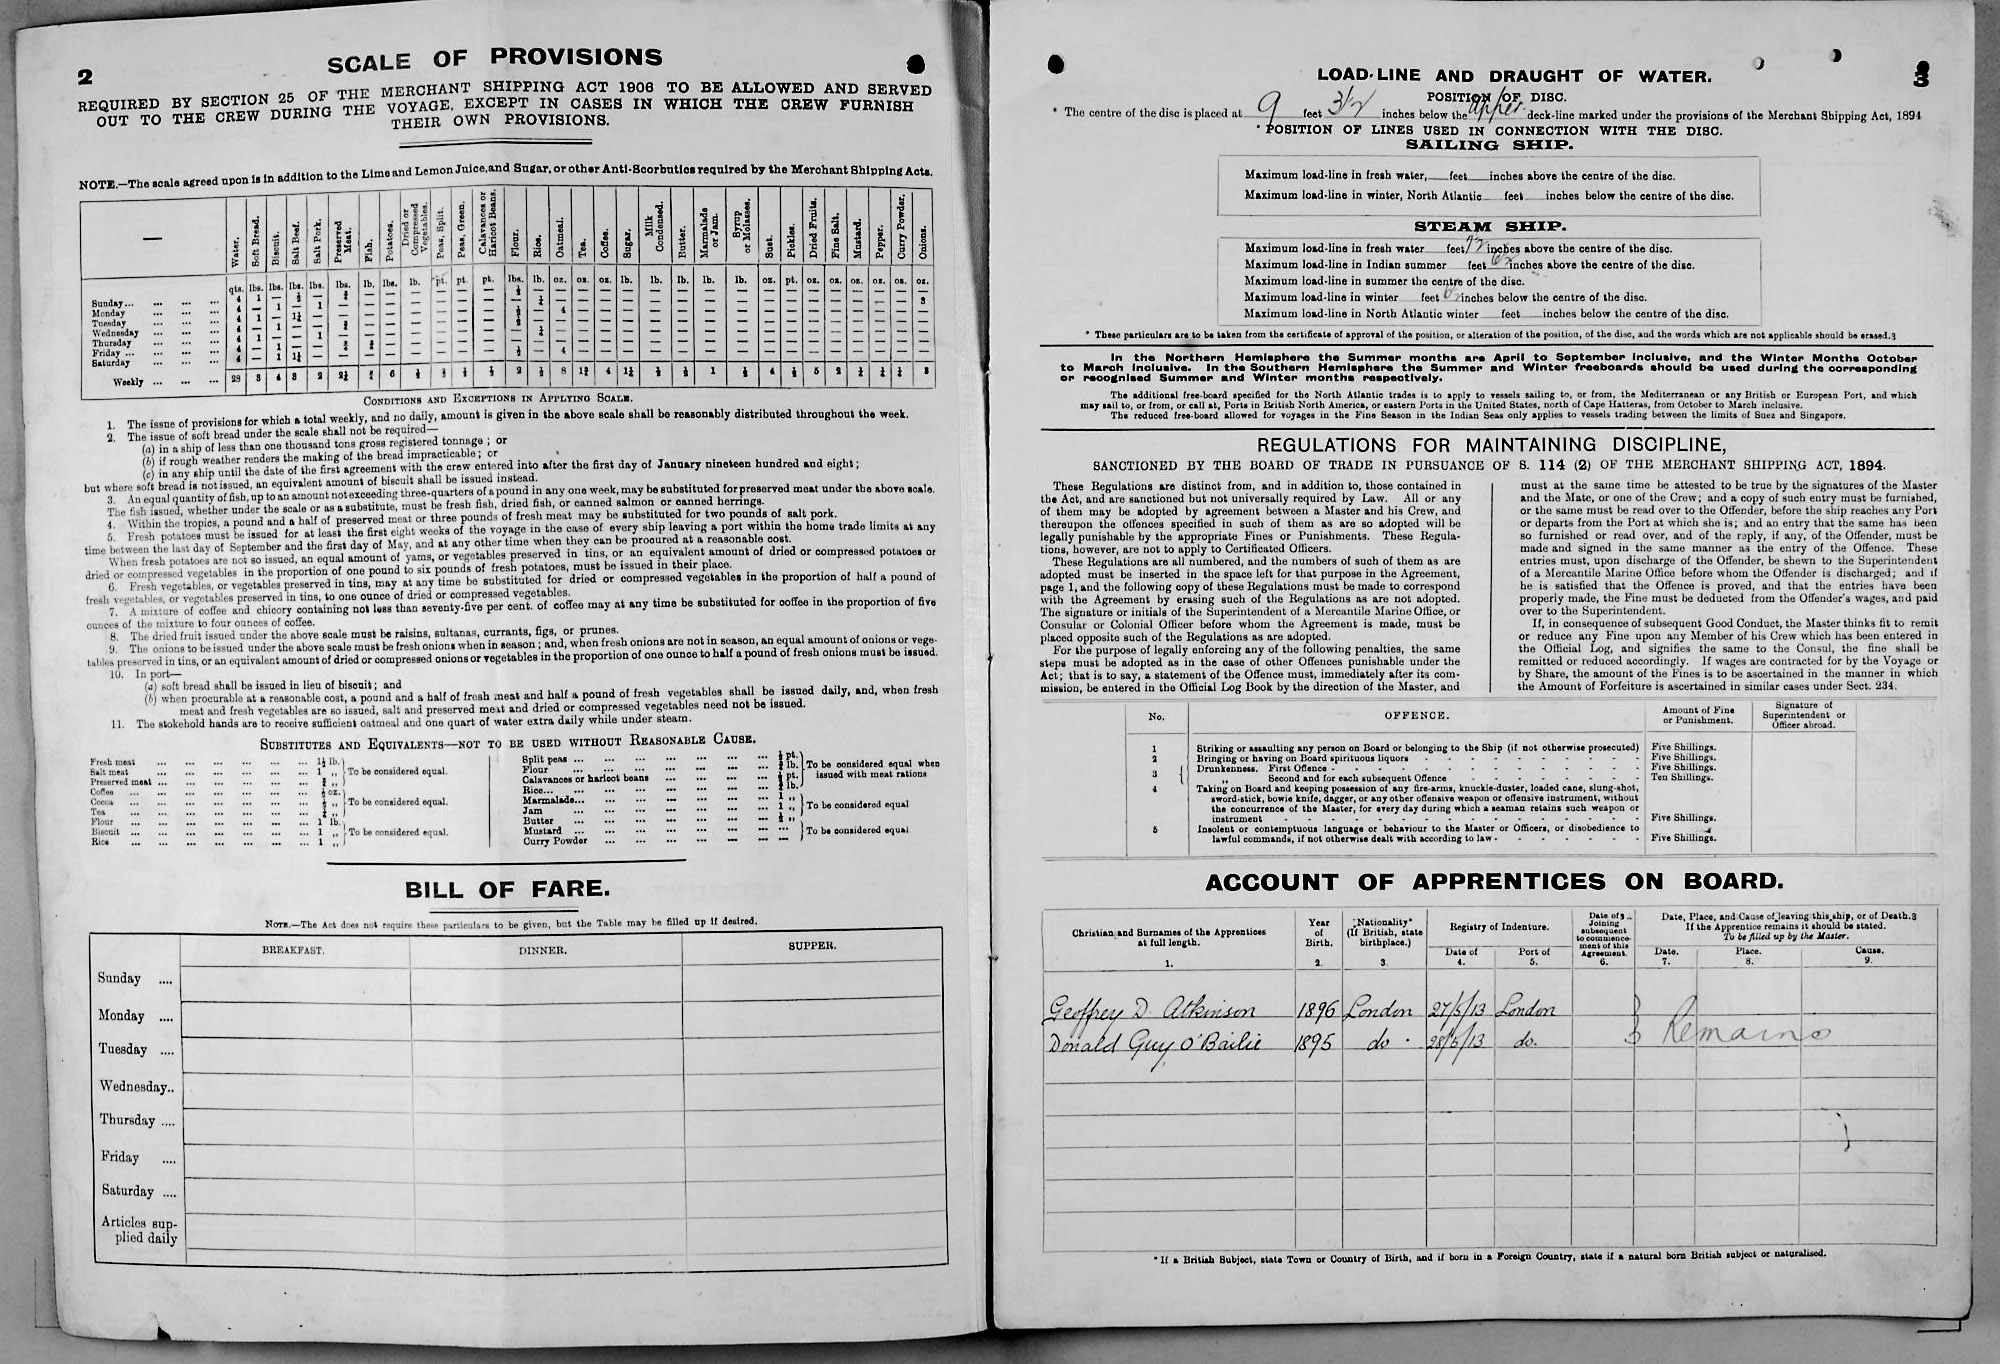 2
SCALE OF PROVISIONS
REQUIRED BY SECTION 25 OF THE MERCHANT SHIPPING ACT 1906 TO BE ALLOWED AND SERVED
OUT TO THE CREW DURING THE VOYAGE, EXCEPT IN CASES IN WHICH THE CREW FURNISH
THEIR OWN PROVISIONS.
NOTE.—The scale agreed upon is in addition to the Lime and Lemon Juice, and Sugar, or other Anti-Scorbutics required by the Merchant Shipping Acts.
— Water. Soft Bread. Biscuit. Salt Beef. Salt Pork. Preserved Meat. Fish. Potatoes. Dried or Compressed Vegetables. Peas, Split. Peas, Green. Calavances or Haricot Beans. Flour. Rice. Oatmeal. Tea. Coffee. Sugar. Milk Condensed. Butter. Marmalade or Jam. Syrup or Molasses. Suet. Pickles. Dried Fruits. Fine Salt. Mustard. Pepper. Curry Powder. Onions.
qts. lbs. lbs. lbs. lbs. lbs. lb. lbs. lb. pt. pt. pt. lbs. lb. oz. oz. oz. lb. lb. lb. lb. lb. oz. pt. oz. oz. oz. oz. oz. oz.
Sunday... ... ... ...
Monday ... ... ...
Tuesday ... ... ...
Wednesday ... ... ...
Thursday ... ... ...
Friday ... ... ... ...
Saturday ... ... ...
Weekly ... ... ... 28 3 4 3 2 2¼
CONDITIONS AND EXCEPTIONS IN APPLYING SCALE.
1. The issue of provisions for which a total weekly, and no daily, amount is given in the above scale shall be reasonably distributed throughout the week.
2. The issue of soft bread under the scale shall not be required—
(a) in a ship of less than one thousand tons gross registered tonnage; or
(b) if rough weather renders the making of the bread impracticable; or
(c) in any ship until the date of the first agreement with the crew entered into after the first day of January nineteen hundred and eight;
but where soft bread is not issued, an equivalent amount of biscuit shall be issued instead.
3. An equal quantity of fish, up to an amount not exceeding three-quarters of a pound in any one week, may be substituted for preserved meat under the above scale.
The fish issued, whether under the scale or as a substitute, must be fresh fish, dried fish, or canned salmon or canned herrings.
4. Within the tropics, a pound and a half of preserved meat or three pounds of fresh meat may be substituted for two pounds of salt pork.
5. Fresh potatoes must be issued for at least the first eight weeks of the voyage in the case of every ship leaving a port within the home trade limits at any
time between the last day of September and the first day of May, and at any other time when they can be procured at a reasonable cost.
When fresh potatoes are not so issued, an equal amount of yams, or vegetables preserved in tins, or an equivalent amount of dried or compressed potatoes or
dried or compressed vegetables in the proportion of one pound to six pounds of fresh potatoes, must be issued in their place.
6. Fresh vegetables, or vegetables preserved in tins, may at any time be substituted for dried or compressed vegetables in the proportion of half a pound of
fresh vegetables, or vegetables preserved in tins, to one ounce of dried or compressed vegetables.
7. A mixture of coffee and chicory containing not less than seventy-five per cent. of coffee may at any time be substituted for coffee in the proportion of five
ounces of the mixture to four ounces of coffee.
8. The dried fruit issued under the above scale must be raisins, sultanas, currants, figs, or prunes.
9. The onions to be issued under the above scale must be fresh onions when in season; and, when fresh onions are not in season, an equal amount of onions or vege-
tables preserved in tins, or an equivalent amount of dried or compressed onions or vegetables in the proportion of one ounce to half a pound of fresh onions must be issued.
10. In port—
(a) soft bread shall be issued in lieu of biscuit; and
(b) when procurable at a reasonable cost, a pound and a half of fresh meat and half a pound of fresh vegetables shall be issued daily, and, when fresh
meat and fresh vegetables are so issued, salt and preserved meat and dried or compressed vegetables need not be issued.
11. The stokehold hands are to receive sufficient oatmeal and one quart of water extra daily while under steam.
SUBSTITUTES AND EQUIVALENTS—NOT TO BE USED WITHOUT REASONABLE CAUSE.
Fresh meat ... 1¼ lb.
Salt meat ... 1 „ To be considered equal.
Preserved meat ...
Coffee ...
Cocoa ... To be considered equal.
Tea ...
Flour ... 1 lb.
Biscuit ... 1 „ To be considered equal.
Rice ... 1 „
Split peas ...
Flour ... To be considered equal when
Calavances or haricot beans ... issued with meat rations
Rice...
Marmalade... 1 „
Jam ... 1 „ To be considered equal
Butter ... ½ „
Mustard ... To be considered equal
Curry Powder ...
BILL OF FARE.
NOTE.—The Act does not require these particulars to be given, but the Table may be filled up if desired.
BREAKFAST. DINNER. SUPPER.
Sunday ....
Monday ....
Tuesday ....
Wednesday..
Thursday ....
Friday ....
Saturday ....
Articles sup-
plied daily
3
LOAD-LINE AND DRAUGHT OF WATER.
POSITION OF DISC.
* The centre of the disc is placed at 9 feet 3½ inches below the upper deck-line marked under the provisions of the Merchant Shipping Act, 1894
* POSITION OF LINES USED IN CONNECTION WITH THE DISC.
SAILING SHIP.
Maximum load-line in fresh water, feet inches above the centre of the disc.
Maximum load-line in winter, North Atlantic feet inches below the centre of the disc.
STEAM SHIP.
Maximum load-line in fresh water feet inches above the centre of the disc.
Maximum load-line in Indian summer feet inches above the centre of the disc.
Maximum load-line in summer the centre of the disc.
Maximum load-line in winter feet inches below the centre of the disc.
Maximum load-line in North Atlantic winter feet inches below the centre of the disc.
* These particulars are to be taken from the certificate of approval of the position, or alteration of the position, of the disc, and the words which are not applicable should be erased.
In the Northern Hemisphere the Summer months are April to September inclusive, and the Winter Months October
to March inclusive. In the Southern Hemisphere the Summer and Winter freeboards should be used during the corresponding
or recognised Summer and Winter months respectively.
The additional free-board specified for the North Atlantic trades is to apply to vessels sailing to, or from, the Mediterranean or any British or European Port, and which
may sail to, or from, or call at, Ports in British North America, or eastern Ports in the United States, north of Cape Hatteras, from October to March inclusive.
The reduced free-board allowed for voyages in the Fine Season in the Indian Seas only applies to vessels trading between the limits of Suez and Singapore.
REGULATIONS FOR MAINTAINING DISCIPLINE,
SANCTIONED BY THE BOARD OF TRADE IN PURSUANCE OF S. 114 (2) OF THE MERCHANT SHIPPING ACT, 1894.
These Regulations are distinct from, and in addition to, those contained in
the Act, and are sanctioned but not universally required by Law. All or any
of them may be adopted by agreement between a Master and his Crew, and
thereupon the offences specified in such of them as are so adopted will be
legally punishable by the appropriate Fines or Punishments. These Regula-
tions, however, are not to apply to Certificated Officers.
These Regulations are all numbered, and the numbers of such of them as are
adopted must be inserted in the space left for that purpose in the Agreement,
page 1, and the following copy of these Regulations must be made to correspond
with the Agreement by erasing such of the Regulations as are not adopted.
The signature or initials of the Superintendent of a Mercantile Marine Office, or
Consular or Colonial Officer before whom the Agreement is made, must be
placed opposite such of the Regulations as are adopted.
For the purpose of legally enforcing any of the following penalties, the same
steps must be adopted as in the case of other Offences punishable under the
Act; that is to say, a statement of the Offence must, immediately after its com-
mission, be entered in the Official Log Book by the direction of the Master, and
must at the same time be attested to be true by the signatures of the Master
and the Mate, or one of the Crew; and a copy of such entry must be furnished,
or the same must be read over to the Offender, before the ship reaches any Port
or departs from the Port at which she is; and an entry that the same has been
so furnished or read over, and of the reply, if any, of the Offender, must be
made and signed in the same manner as the entry of the Offence. These
entries must, upon discharge of the Offender, be shewn to the Superintendent
of a Mercantile Marine Office before whom the Offender is discharged; and if
he is satisfied that the Offence is proved, and that the entries have been
properly made, the Fine must be deducted from the Offender's wages, and paid
over to the Superintendent.
If, in consequence of subsequent Good Conduct, the Master thinks fit to remit
or reduce any Fine upon any Member of his Crew which has been entered in
the Official Log, and signifies the same to the Consul, the fine shall be
remitted or reduced accordingly. If wages are contracted for by the Voyage or
by Share, the amount of the Fines is to be ascertained in the manner in which
the Amount of Forfeiture is ascertained in similar cases under Sect. 234.
No. OFFENCE. Amount of Fine or Punishment. Signature of Superintendent or Officer abroad.
1 Striking or assaulting any person on Board or belonging to the Ship (if not otherwise prosecuted) Five Shillings.
2 Bringing or having on Board spirituous liquors Five Shillings.
3 Drunkenness. First Offence Five Shillings.
„ Second and for each subsequent Offence Ten Shillings.
4 Taking on Board and keeping possession of any fire-arms, knuckle-duster, loaded cane, slung-shot,
sword-stick, bowie knife, dagger, or any other offensive weapon or offensive instrument, without
the concurrence of the Master, for every day during which a seaman retains such weapon or
instrument Five Shillings.
5 Insolent or contemptuous language or behaviour to the Master or Officers, or disobedience to
lawful commands, if not otherwise dealt with according to law Five Shillings.
ACCOUNT OF APPRENTICES ON BOARD.
Christian and Surnames of the Apprentices at full length. 1.
Year of Birth. 2.
Nationality* (If British, state birthplace.) 3.
Registry of Indenture.
Date of 4. Port of 5.
Date of Joining subsequent to commencement of this Agreement. 6.
Date, Place, and Cause of leaving this ship, or of Death.
If the Apprentice remains it should be stated.
To be filled up by the Master.
Date. 7. Place. 8. Cause. 9.
Geoffrey D. Atkinson 1896 London 27/5/13 London
Donald Guy O'Bailie 1895 do. 28/5/13 do. } Remains
* If a British Subject, state Town or Country of Birth, and if born in a Foreign Country, state if a natural born British subject or naturalised.